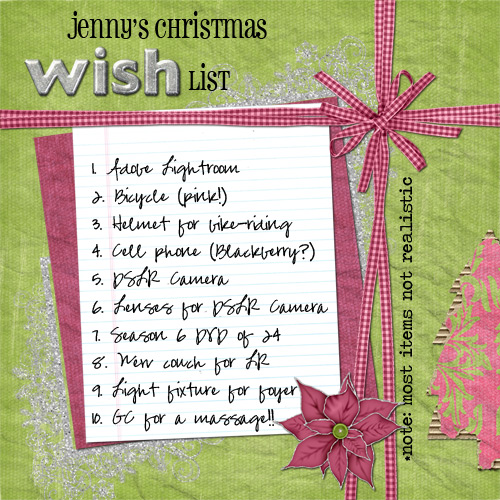 jenny's christmas
wish list
1. Adobe Lightroom
2. Bicycle (pink!)
3. Helmet for bike-riding
4. Cell phone (Blackberry?)
5. DSLR Camera
6. Lenses for DSLR Camera
7. Season 6 DVD of 24
8. New couch for LR
9. Light fixture for foyer
10. GC for a massage!!
*note: most items not realistic